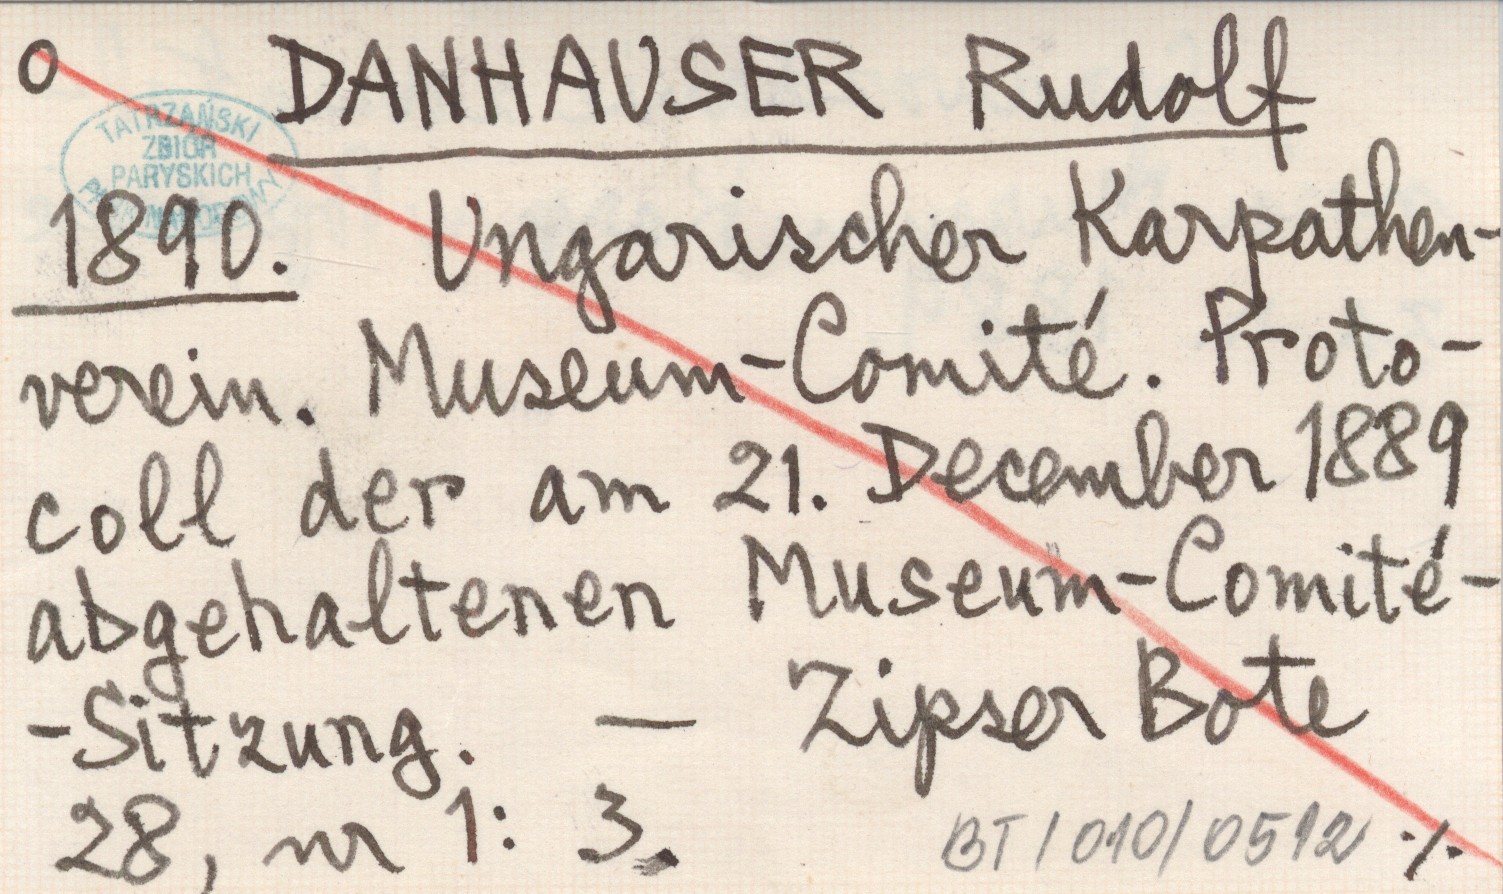 O DANHAUSER Rudolf
TATRZAŃSKI
ZBIÓR
PARYSKICH
1890. Ungarischer Karpathen-
verein. Museum-Comité. Proto-
coll der am 21. December 1889
abgehaltenen Museum-Comité-
-Sitzung. — Zipser Bote
28, nr 1: 3.
BT/010/0512 ./.